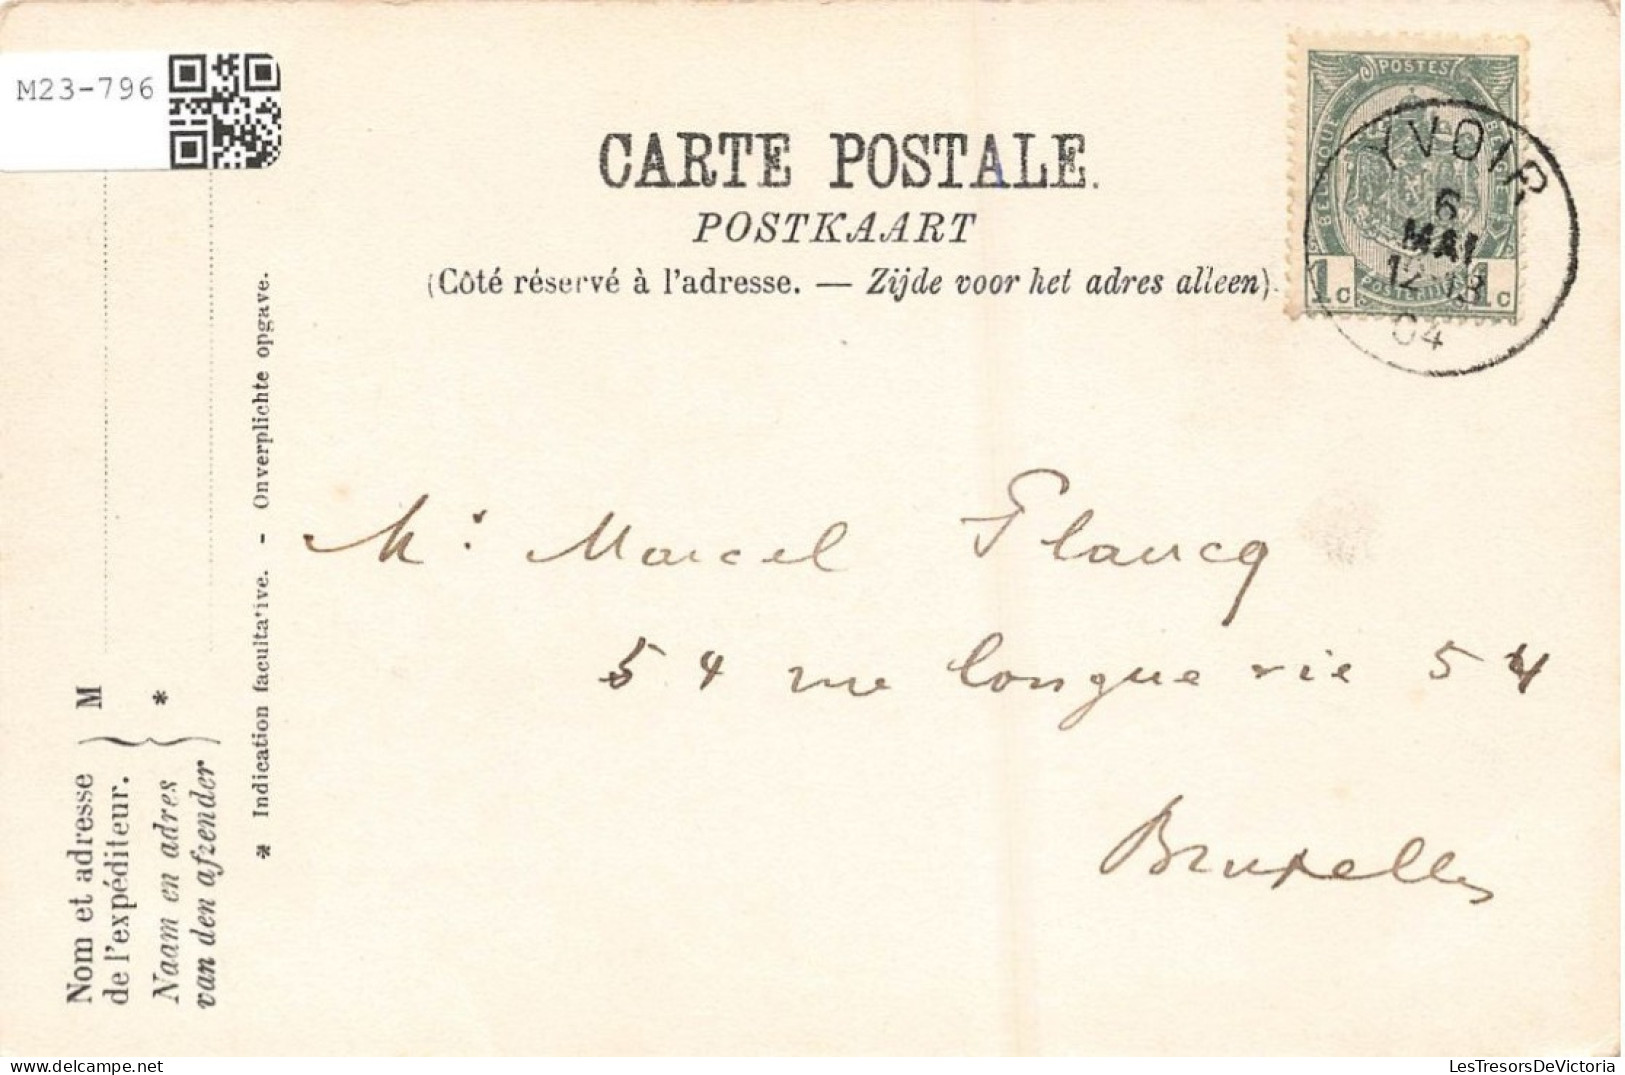 M23-796
CARTE POSTALE.
POSTKAART
(Côté réservé à l'adresse. — Zijde voor het adres alleen).
POSTES
BELGIQUE
BELGIË
POSTERIJEN
1c 1c
YVOIR
6
MAI
12-13
04
Mr Marcel Glaucq
54 rue longue vie 54
Bruxelles
Nom et adresse
de l'expéditeur.
Naam en adres
van den afzender
M
*
* Indication facultative. - Onverplichte opgave.
LesTresorsDeVictoria